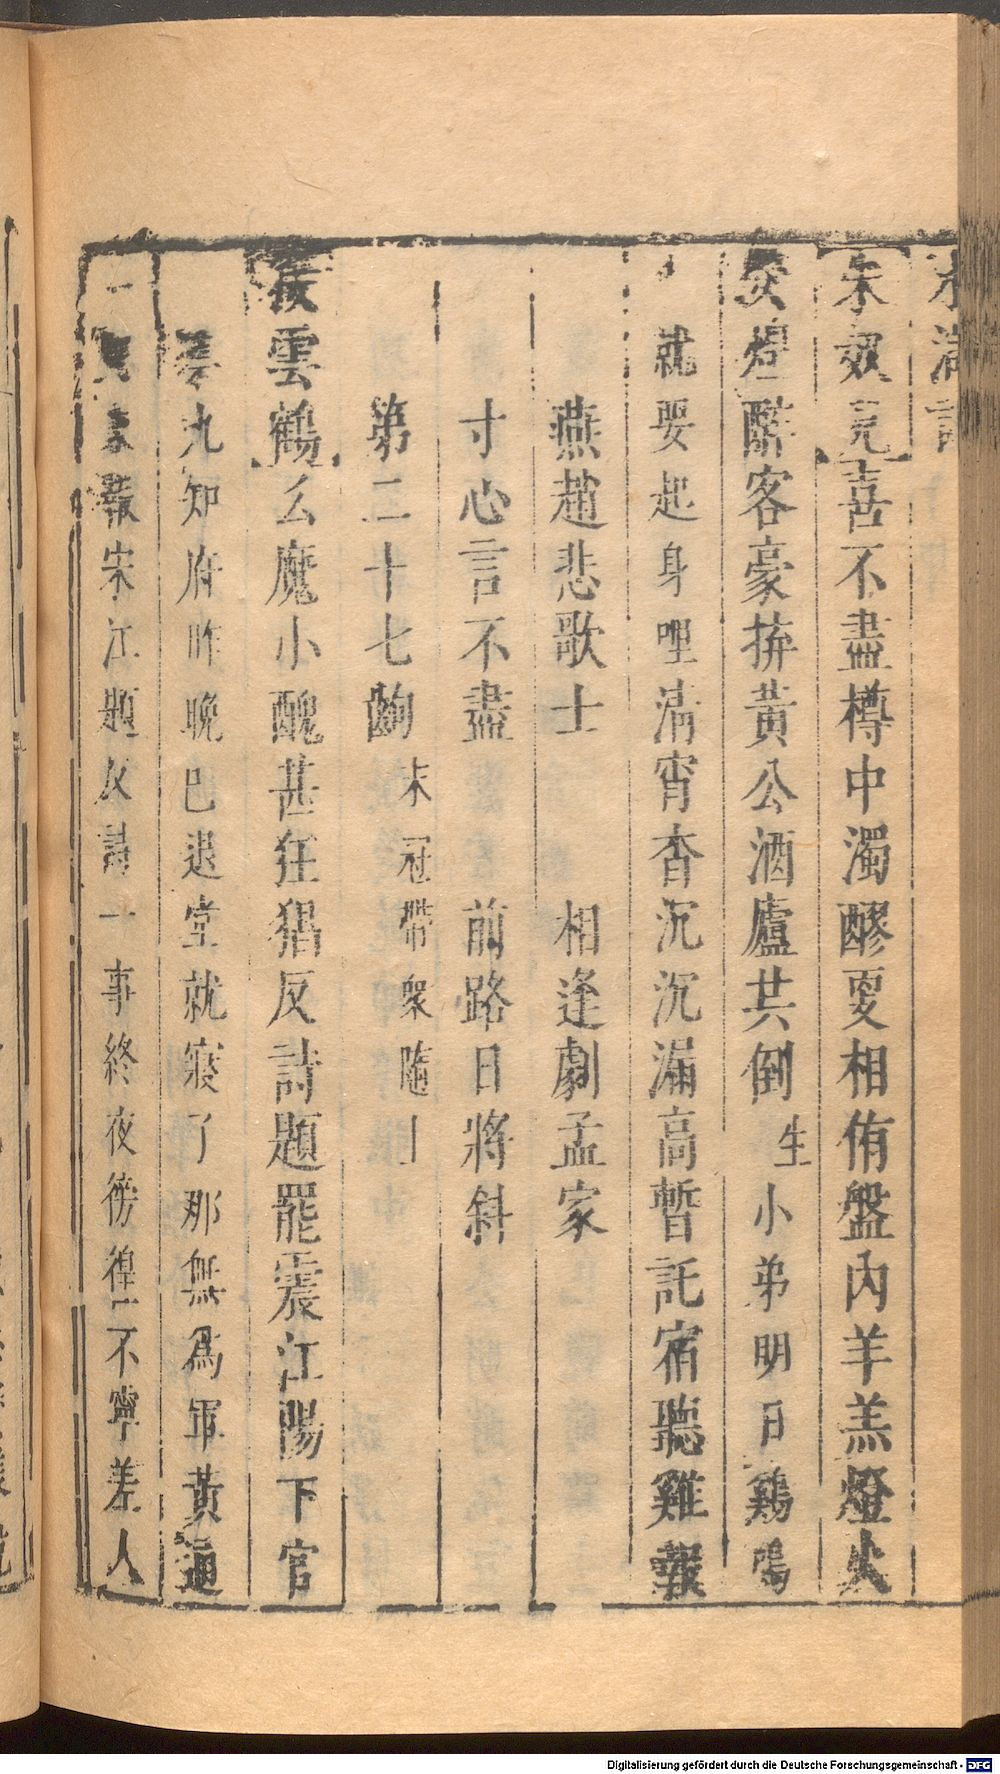 水滸記
朱奴兒喜不盡樽中濁醪更相侑盤內羊羔燈火
熒煌醉客豪拚黃公酒廬共倒生小弟明日鷄鳴
就要起身哩清宵杳沉沉漏高暫託宿聽雞報
燕趙悲歌士　相逢劇孟家
寸心言不盡　前路日將斜
第二十七齣末冠帶衆隨上
雲鶴么魔小醜甚狂猖反詩題罷震江陽下官
九知府昨晚已退堂就寢了那無爲軍黃通
報宋江題反詩一事終夜徬徨二不寧差人
Digitalisierung gefördert durch die Deutsche Forschungsgemeinschaft - DFG